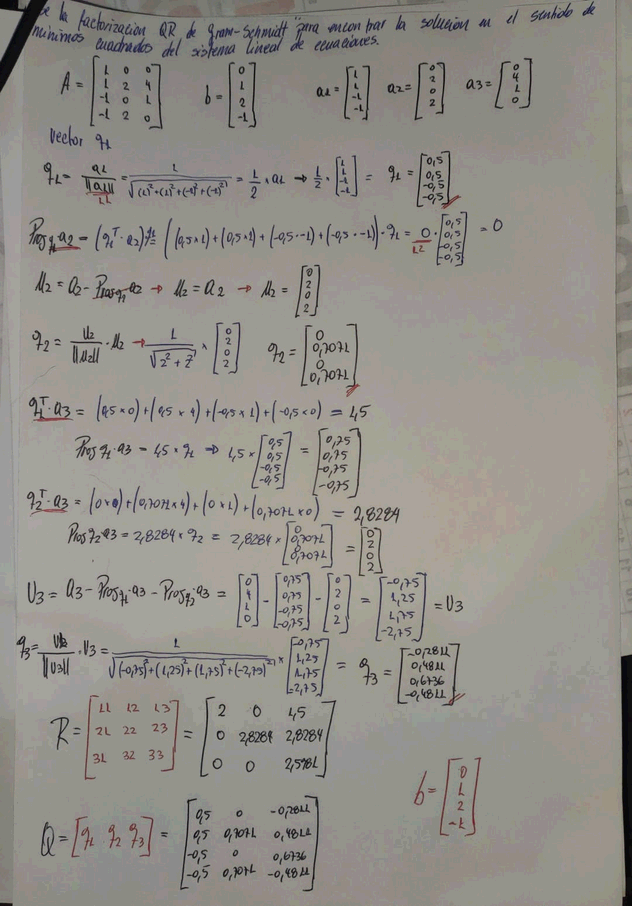 se la factorización QR de Gram-Schmidt para encontrar la solución en el sentido de
mínimos cuadrados del sistema lineal de ecuaciones.
A = [1 0 0; 1 2 4; -1 0 1; -1 2 0] b = [0; 1; 2; -1] a1 = [1; 1; -1; -1] a2 = [0; 2; 0; 2] a3 = [0; 4; 1; 0]
vector q1
q1 = a1/||a1|| = 1/√((1)²+(1)²+(-1)²+(-1)²) = 1/2 · a1 → 1/2 · [1; 1; -1; -1] = q1 = [0,5; 0,5; -0,5; -0,5]
11
Proy q1 a2 = (q1^T · a2) q1 = ((0,5×1)+(0,5×1)+(-0,5·-1)+(-0,5·-1)) · q1 = 0 · [0,5; 0,5; -0,5; -0,5] = 0
12
u2 = a2 - Proy q1 a2 → u2 = a2 → u2 = [0; 2; 0; 2]
q2 = u2/||u2|| · u2 → 1/√(2²+2²) × [0; 2; 0; 2] q2 = [0; 0,7071; 0; 0,7071]
q1^T · a3 = (0,5×0)+(0,5×4)+(-0,5×1)+(-0,5×0) = 1,5
Proy q1·a3 = 1,5 × q1 → 1,5 × [0,5; 0,5; -0,5; -0,5] = [0,75; 0,75; -0,75; -0,75]
q2^T · a3 = (0×0)+(0,7071×4)+(0×1)+(0,7071×0) = 2,8284
Proy q2·a3 = 2,8284 × q2 = 2,8284 × [0; 0,7071; 0; 0,7071] = [0; 2; 0; 2]
U3 = a3 - Proy q1·a3 - Proy q2·a3 = [0; 4; 1; 0] - [0,75; 0,75; -0,75; -0,75] - [0; 2; 0; 2] = [-0,75; 1,25; 1,75; -2,75] = U3
q3 = U3/||U3|| · U3 = 1/√((-0,75)²+(1,25)²+(1,75)²+(-2,75)²) × [-0,75; 1,25; 1,75; -2,75] = q3 = [-0,2811; 0,4811; 0,6736; -0,4811]
R = [11 12 13; 21 22 23; 31 32 33] = [2 0 1,5; 0 2,8284 2,8284; 0 0 2,5981]
b = [0; 1; 2; -1]
Q = [q1 q2 q3] = [0,5 0 -0,2811; 0,5 0,7071 0,4811; -0,5 0 0,6736; -0,5 0,7071 -0,4811]